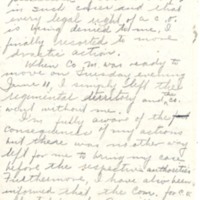 in such cases and that
every legal right of a C.O.
is being denied to me, I
finally resorted to more
drastic action.
When Co. M. was ready to
move on Tuesday evening
June 11, I simply left the
regimental directory and
went without me.
I'm fully aware of the
consequences of my actions
but there was no other way
left for me to bring my case
before the respective authorities.
Furthermore, I have also been
informed that the Com. for C.O.